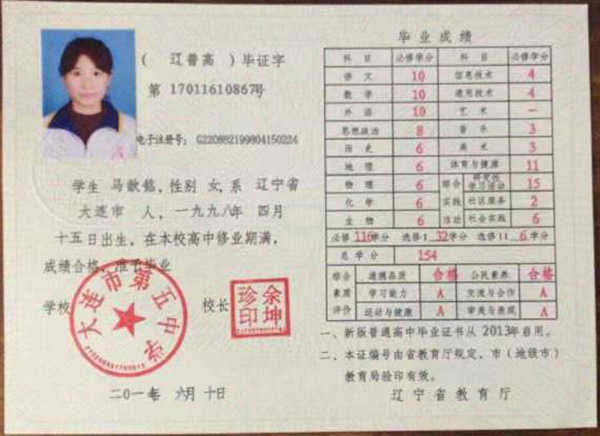 ( 辽普高 ) 毕证字
第 17011610867号
电子注册号: G220882199804150224
学生 马歆铭, 性别 女, 系 辽宁省
大连市 人, 一九九八年 四月
十五日出生, 在本校高中修业期满,
成绩合格, 准予毕业
学校
大连市第五中学
校长
余坤珍印
二〇一 年 六月 十日
毕业成绩
科目 必修学分 科目 必修学分
语文 10 信息技术 4
数学 10 通用技术 4
外语 10 艺术 —
思想政治 8 音乐 3
历史 6 美术 3
地理 6 体育与健康 11
物理 6 综合 研究性学习活动 15
化学 6 实践 社区服务 2
生物 6 活动 社会实践 6
必修 116学分 选修I 32学分 选修II 6学分
总学分 154
综合 道德品质 合格 公民素养 合格
素质 学习能力 A 交流与合作 A
评价 运动与健康 A 审美与表现 A
一、新版普通高中毕业证书从2013年启用。
二、本证编号由省教育厅规定, 市 (地级市)
教育局验印有效。
辽宁省教育厅